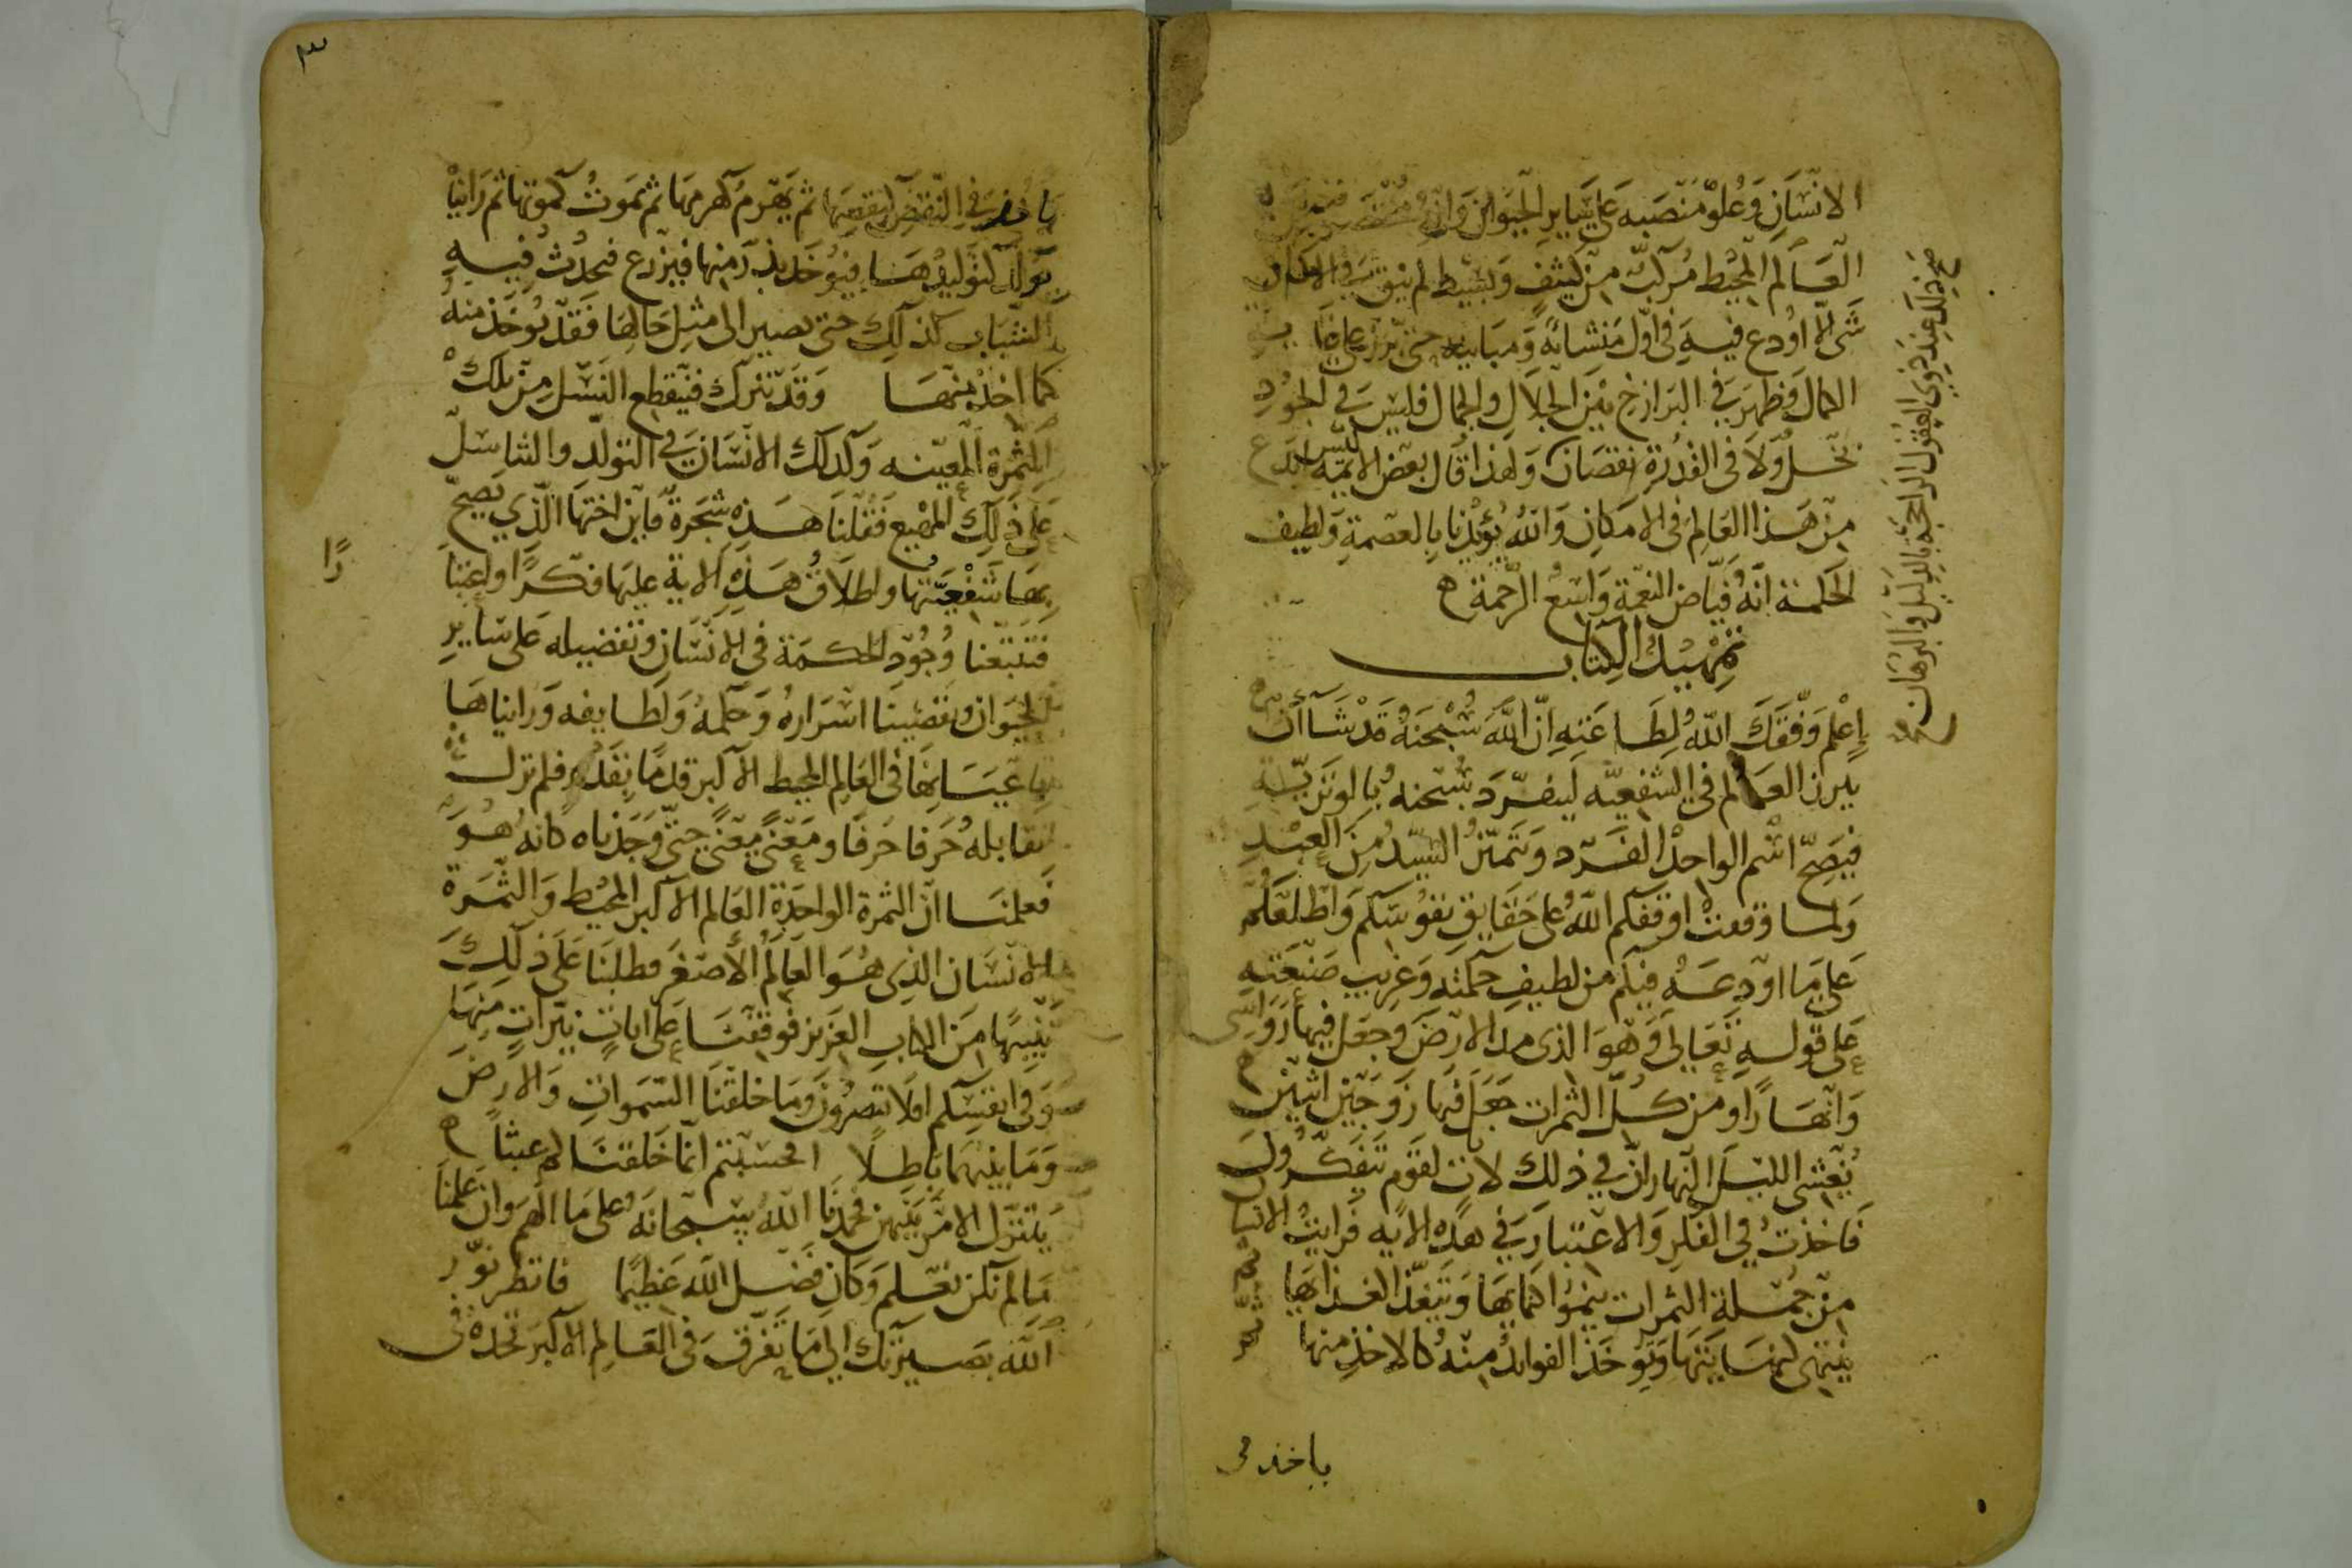 الانسان وعلو منصبه على سائر الحيوان وانه مختصر من
العالم المحيط مركب من كثيف وبسيط لم يبق في الامكان
شي الا اودع فيه في اول منشائه ومبانيه حتى برز على غاية
الكمال وظهر في البرازخ بين الجلال والجمال فليس في الجود
بخل ولا في القدرة نقصان ولهذا قال بعض الايمة ليس ابدع
من هذا العالم في الامكان والله يؤيدنا بالعصمة ولطيف
الحكمة انه فياض النعمة واسع الرحمة ه
تمهيد الكتاب
إعلم وفقك الله لطاعته ان الله سبحنه قد شاأن
يبرز العالم في الشفعيه لينفرد سبحنه بالوترية
فيصح اسم الواحد الفرد ويتميز السيد من العبد
ولما وقعت اوقفكم الله على حقايق نفوسكم واطلعكم
على ما اودعه فيكم من لطيف حكمته وغريب صنعته
على قوله تعالى وهو الذى مد الارض وجعل فيها رواسى
وانهارا ومن كل الثمرات جعل فيها زوجين اثنين
يغشى الليل النهار ان في ذلك لايات لقوم يتفكرون
فاخذت في الفكر والاعتبار في هذه الايه فرايت الانسا
من جملة الثمرات ينموا كنمايها ويتغذا الغذايها
ينتهى لنهايتها ويوخذ الفوائد منه كالاخذ منها
صح ذلك عند ذوي العقول الراجحة بالدليل والبرهان
ياخذ فى
٣
ياخذ في النقص كنقصها ثم يهرم كهرمها ثم يموت كموتها ثم راينا
تولد كتوليدها فيؤخذ بذر منها فيزرع فيحدث فيه
الشباب كذلك حتى يصير الى مثل حالها فقد يوخذ منه
كما اخذ منها وقد تترك فينقطع النسل من تلك
الثمرة المعينه وكذلك الانسان في التولد والتناسل
على ذلك المهيع فقلنا هذه شجرة فاين اختها الذي يصح
بها شفعيتها واطلاق هذه الاية عليها فكرا واعتبا
را
فتتبعنا وجود الحكمة في الانسان وتفضيله على ساير
الحيوان وتقصينا اسراره وحكمه ولطايفه ورايناها
باعيانها في العالم المحيط الاكبر قدما بقدم فلم نزل
نقابله حرفا حرفا ومعنى معنى حتى وجدناه كانه هو
فعلمنا ان الثمرة الواحدة العالم الاكبر المحيط والثمرة
الانسان الذى هو العالم الأصغر فطلبنا على ذلك
تنبيها من الكتاب العزيز فوقفنا على ايات نيرات منها
وفي انفسكم افلا تبصرون وما خلقنا السموات والارض
وما بينهما باطلا افحسبتم انما خلقناكم عبثا
يتنزل الامر بينهن فحمدنا الله سبحانه على ما الهم وان علمنا
ما لم نكن نعلم وكان فضل الله عظيما فانظر نور
الله بصيرتك الى ما تفرق في العالم الاكبر تجده في